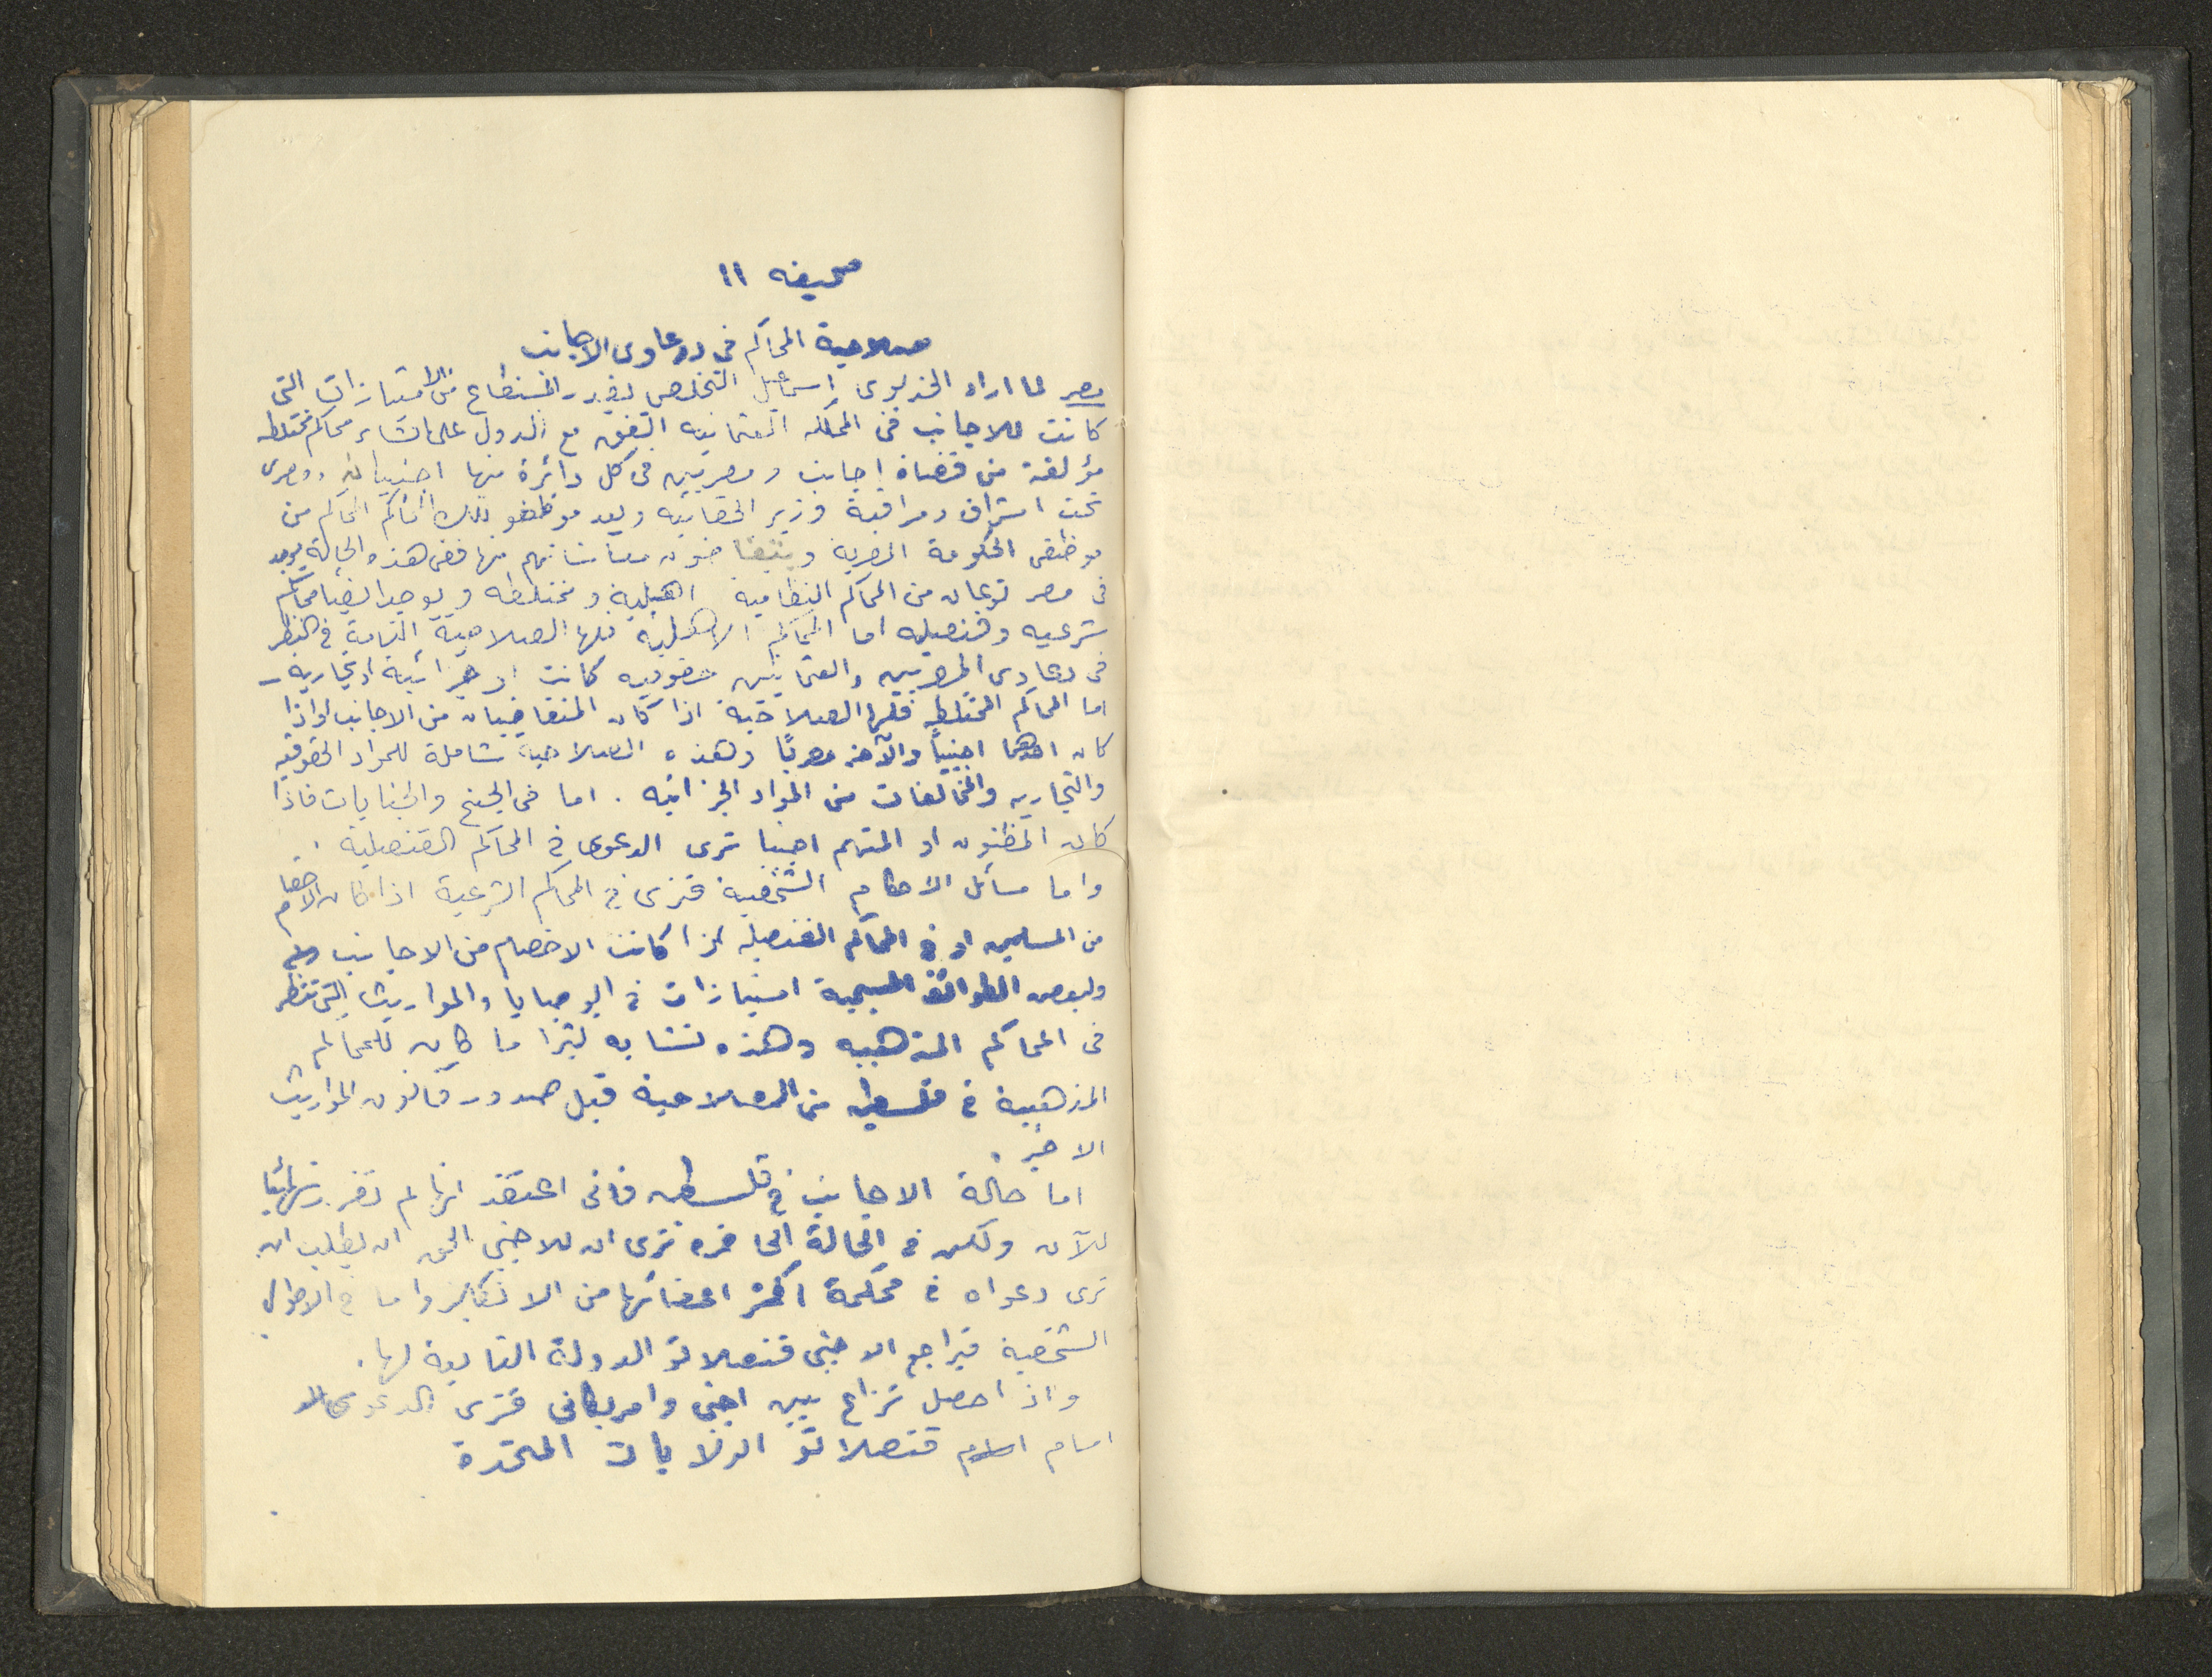 صحيفه ١١
صلاحية المحاكم في دعاوى الاجانب
مصر لما اراد الخديوى اسماعيل التخلص بقدر المستطاع من الامتيازات التى
كانت للاجانب فى المملكه العثمانيه اتفق مع الدول على انشاء محاكم مختلطه
مؤلفة من قضاة اجانب ومصريين فى كل دائرة منها اجنبيان ومصرى
تحت اشراف ومراقبة وزير الحقانيه ويعد موظفو تلك المحاكم من
موظفى الحكومة المصرية ويتقاضون معاشاتهم منها ففى هذه الحالة يوجد
فى مصر نوعان من المحاكم النظامية اهلية ومختلطه ويوجد ايضا محاكم
شرعيه وقنصليه اما المحاكم الاهلية فلها الصلاحية التامة في النظر
فى دعاوى المصريين والعثمانيين حقوقيه كانت او جزائية او تجاريه -
اما المحاكم المختلطه فلها الصلاحية اذا كان المتقاضيان من الاجانب او اذا
كان احدهما اجنبياً والآخر مصريًا وهذه الصلاحية شاملة للمواد الحقوقيه
والتجاريه والمخالفات من المواد الجزائيه . اما فى الجنح والجنايات فاذا
كان المظنون او المتهم اجنبيا ترى الدعوى في المحاكم القنصلية .
واما مسائل الاحكام الشخصية فترى في المحاكم الشرعية اذا كان الاخصام
من المسلمين او في المحاكم القنصليه اذا كانت الاخصام من الاجانب
ولبعض الطوائف المسيحية امتيازات في الوصايا والمواريث التى تنظر
فى المحاكم المذهبيه وهذه تشابه كثيرا ما كان للمحاكم
المذهبية في فلسطين من الصلاحية قبل صدور قانون المواريث
الاخير .
اما حالة الاجانب في فلسطين فانى اعتقد انها لم تقرر نهائيا
للآن ولكن في الحالة الحاضره نرى ان للاجنبى الحق ان يطلب ان
ترى دعواه في محكمة اكثر اعضائها من الانكليز واما في الاحوال
الشخصية فيراجع الاجنبى قنصلاتو الدولة التابع لها .
واذا حصل نزاع بين اجنبى وامريكانى فترى الدعوى
امام قنصلاتو الولايات المتحدة